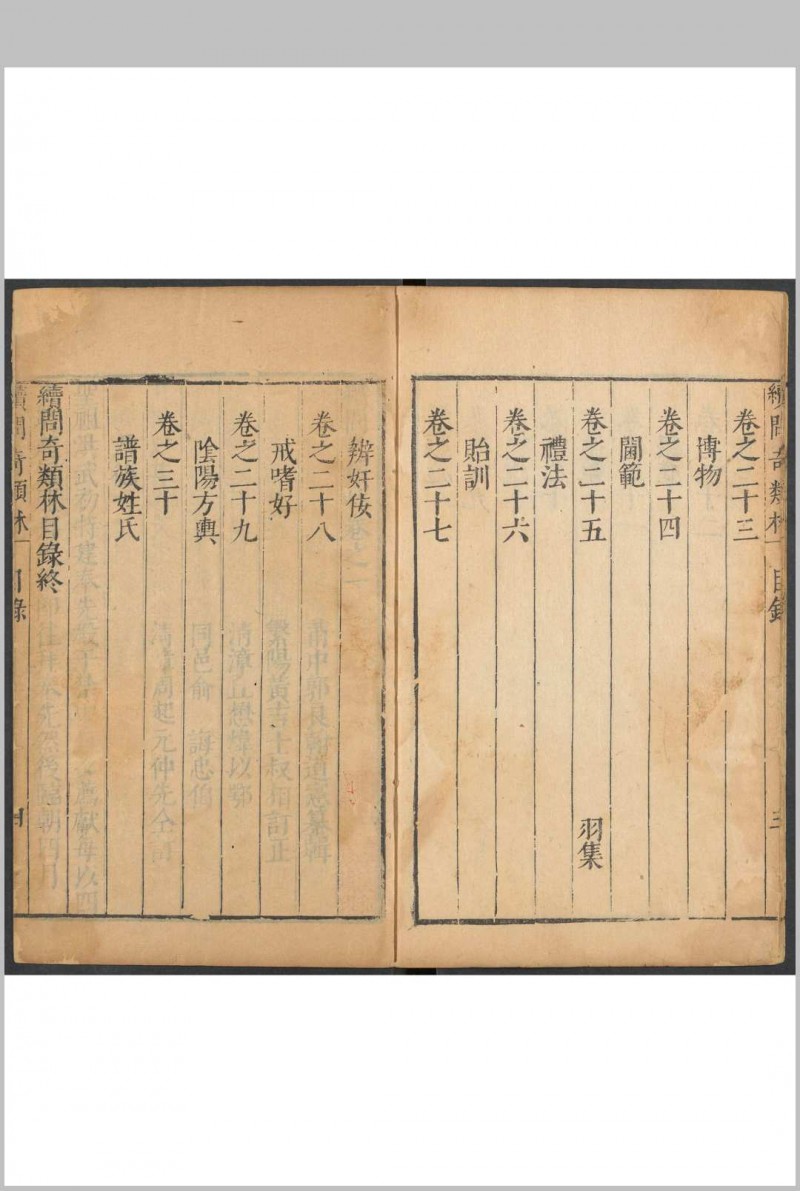 續問奇類林
目錄
三
卷之二十三
博物
卷之二十四
閫範
卷之二十五
羽集
禮法
卷之二十六
貽訓
卷之二十七
辨奸佞
卷之二十八
戒嗜好
卷之二十九
陰陽方輿
卷之三十
譜族姓氏
續問奇類林目錄終
續問奇類林
目錄
四